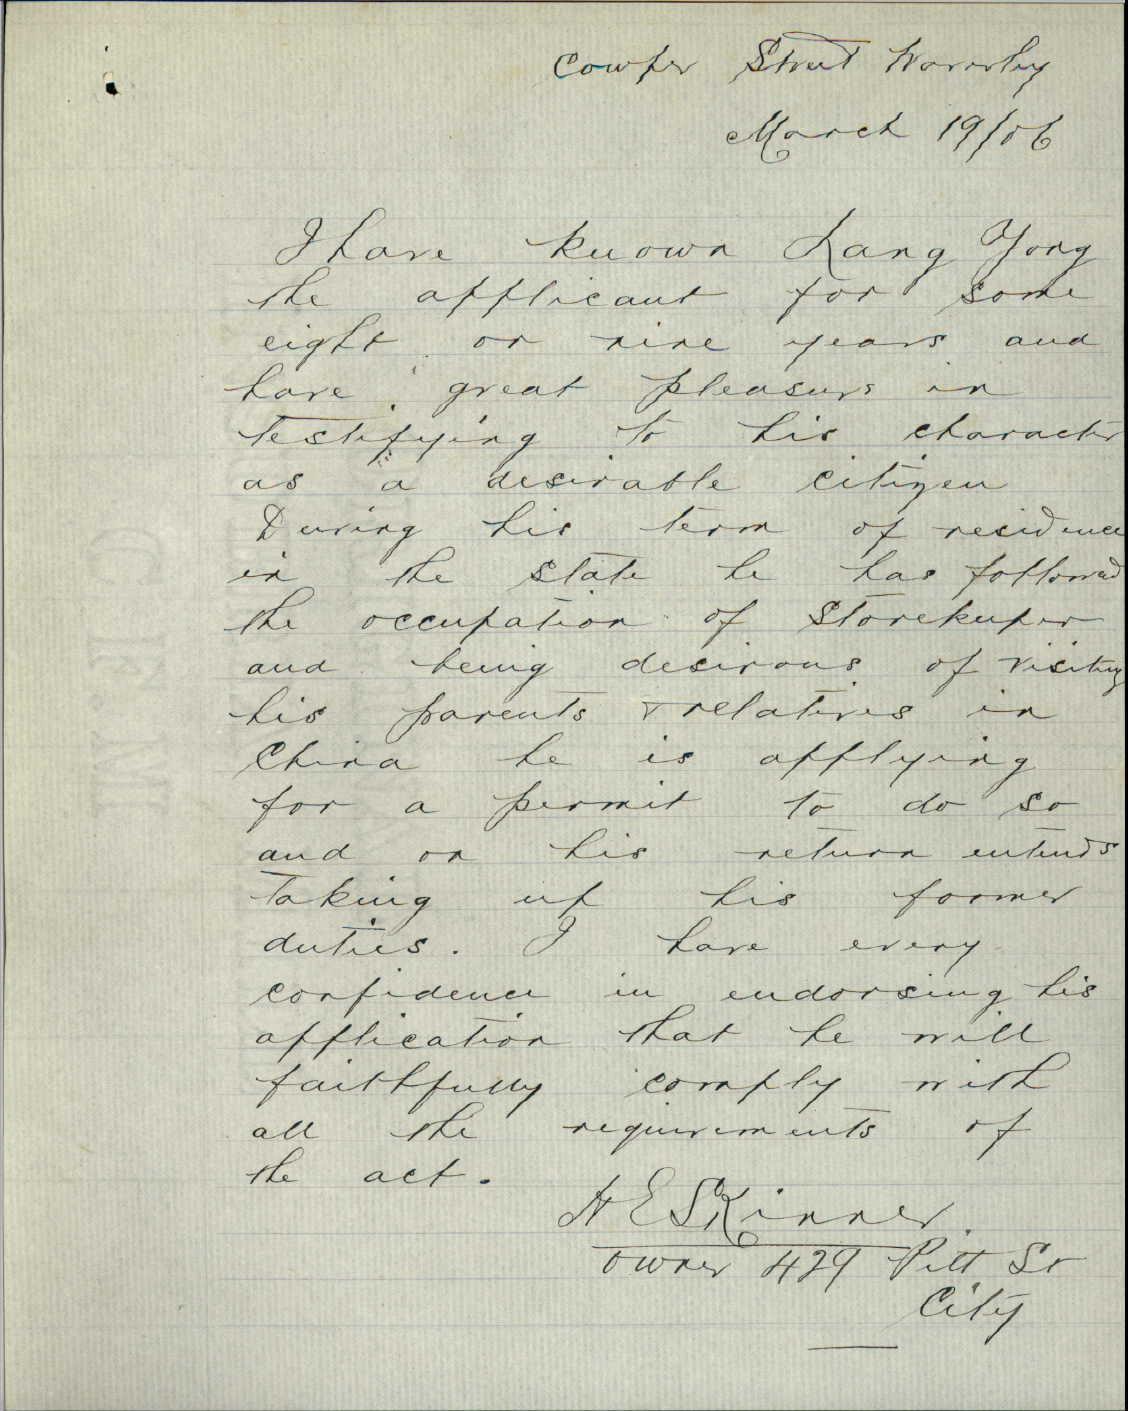 Cowper Street Waverley
March 19/06
I have known Lang Yong
the applicant for some
eight or nine years and
have great pleasure in
testifying to his character
as a desirable citizen
During his term of residence
in the state he has followed
the occupation of Storekeeper
and being desirous of visiting
his parents & relatives in
China he is applying
for a permit to do so
and on his return intends
taking up his former
duties. I have every
confidence in endorsing his
application that he will
faithfully comply with
all the requirements of
the act.
H E Skinner.
owner 429 Pitt St
City